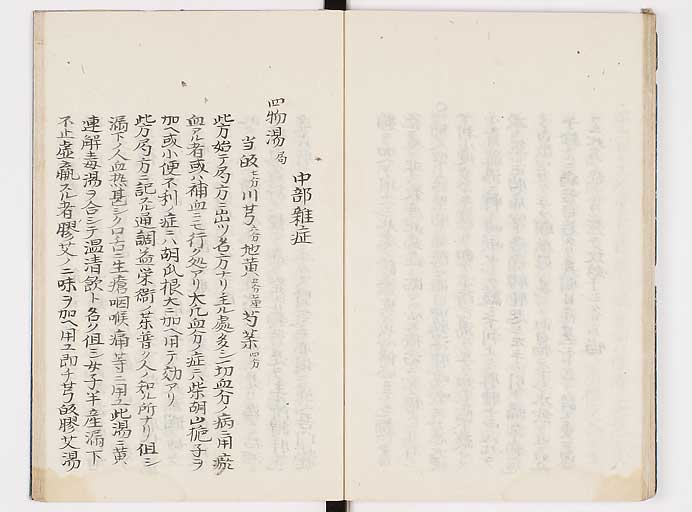 中部雜症
四物湯 局
当皈 七分 川芎 六分 地黄 五分 芍薬 四分
此方始テ局方ニ出ツ名方ナリ主ル處多シ一切血分ノ病ニ用瘀
血アル者或ハ補血ニモ行ク処アリ大凢血分ノ症ニハ柴胡山梔子ヲ
加ヘ或小便不利ノ症ニハ胡瓜根大ニ加ヘ用テ効アリ
此方局方ニ記スル通調益栄衞ノ薬普ク人ノ和ル所ナリ但シ
漏下ノ人血热甚シク口舌ニ生瘡咽喉痛等ニ用ユ此湯ニ黄
連解毒湯ヲ合シテ温清飲ト名ク但シ女子半産漏下
不止虚羸スル者膠艾ノ二味ヲ加ヘ用ユ即チ芎皈膠艾湯